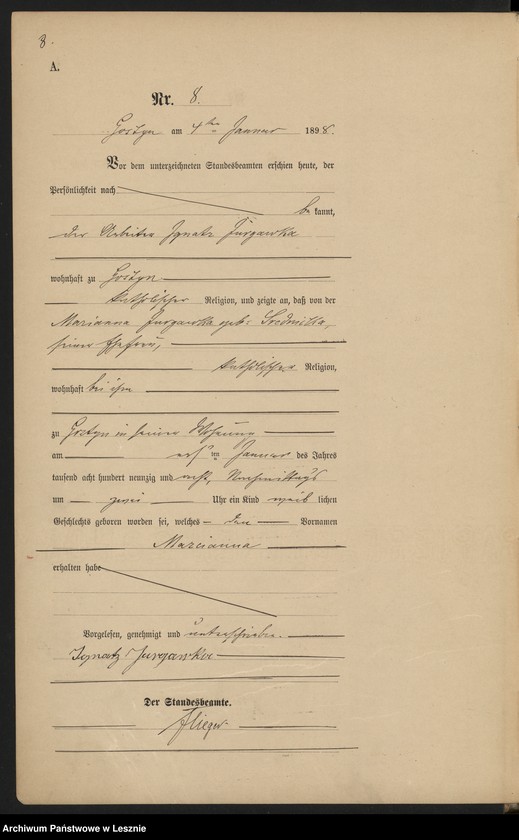 8.
A.
Nr. 8.
Gostyn am 4ten Januar 1898.
Vor dem unterzeichneten Standesbeamten erschien heute, der
Persönlichkeit nach
be kannt,
der Arbeiter Ignatz Jurgawka
wohnhaft zu Gostyn
katholischer Religion, und zeigte an, daß von der
Marianna Jurgawka geb:
seiner Ehefrau,
katholischer Religion,
wohnhaft bei ihm
zu Gostyn in seiner Wohnung
am ersten Januar des Jahres
tausend acht hundert neunzig und acht, Nachmittags
um zwei Uhr ein Kind weib lichen
Geschlechts geboren worden sei, welches den Vornamen
Marcianna
erhalten habe
Vorgelesen, genehmigt und unterschrieben.
Ignatz Jurgawka
Der Standesbeamte.
Flieger
Archiwum Państwowe w Lesznie